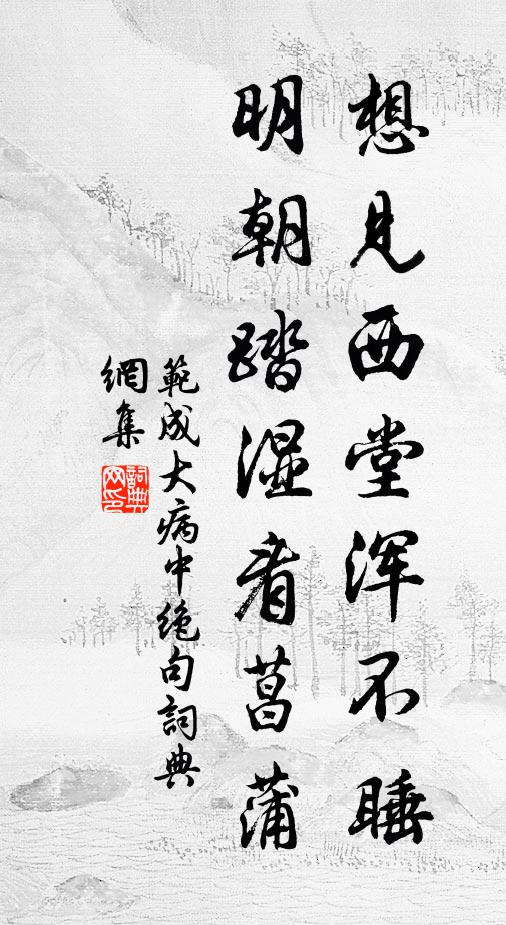 想見西堂浑不睡
明朝踏湿看菖蒲
範成大病中绝句詞典
網集
詞典网印